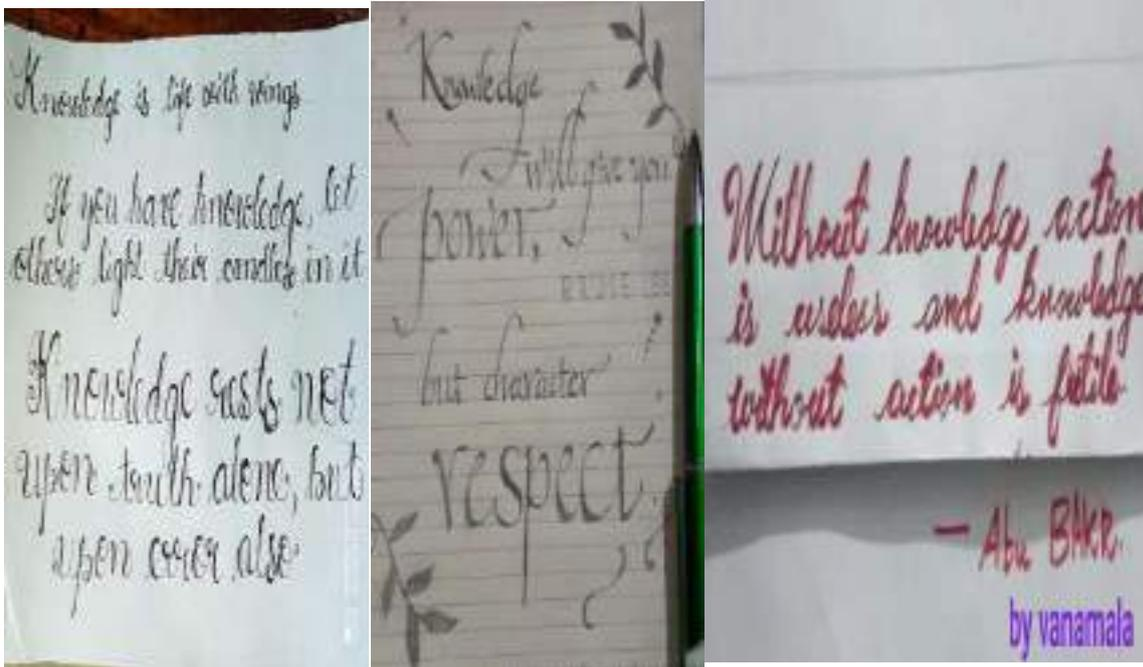 Knowledge is life with wings
If you have knowledge, let
others light their candles in it
Knowledge rests not
upon truth alone, but
upon error also
Knowledge
will give you
power,
BRUCE LEE
but character
respect.
Without knowledge action
is useless and knowledge
without action is futile
— Abu BAKR.
by vanamala